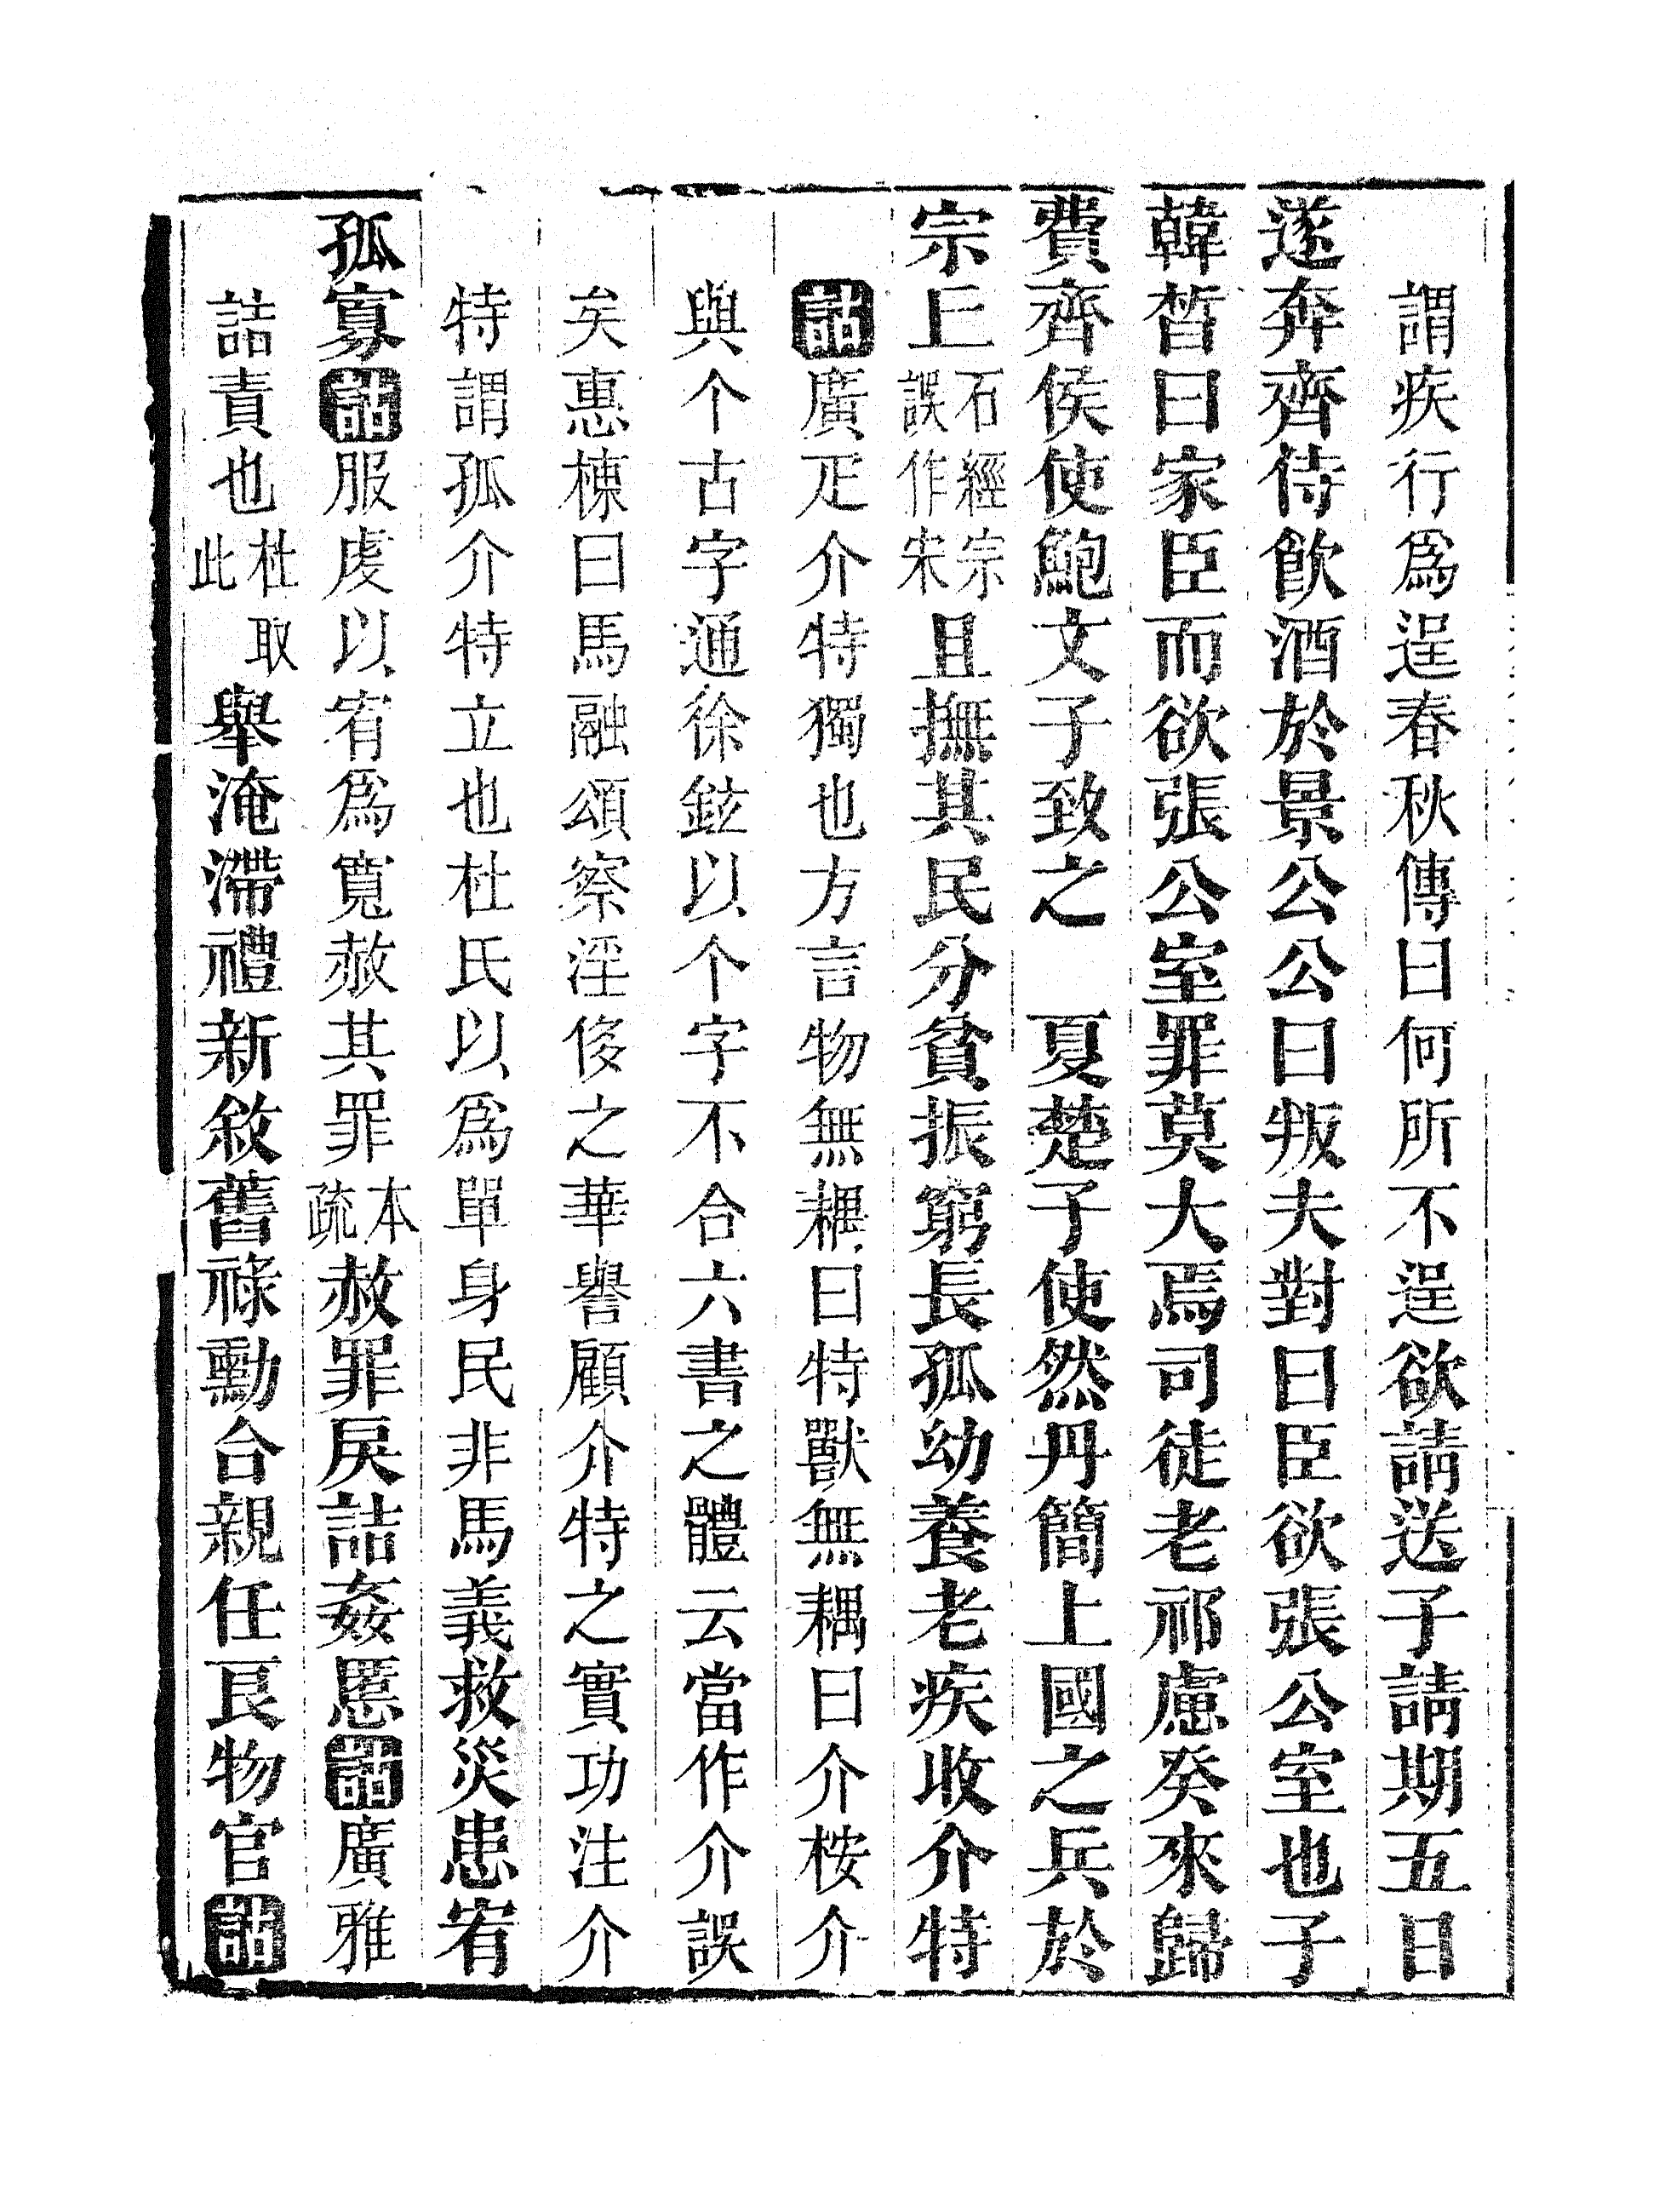 謂疾行爲逞春秋傳曰何所不逞欲請送子請期五日
遂奔齊侍飮酒於景公公曰叛夫對曰臣欲張公室也子
韓晳曰家臣而欲張公室罪莫大焉司徒老祁慮癸來歸
費齊侯使鮑文子致之　夏楚子使然丹簡上國之兵於
宗丘石經宗誤作宋且撫其民分貧振窮長孤幼養老疾收介特
詁廣疋介特獨也方言物無耦曰特獸無耦曰介桉介
與个古字通徐鉉以个字不合六書之體云當作介誤
矣惠棟曰馬融頌察淫侈之華譽顧介特之實功注介
特謂孤介特立也杜氏以爲單身民非馬義救災患宥
孤寡詁服虔以宥爲寬赦其罪本疏赦罪戾詰姦慝詁廣雅
詰責也杜取此舉淹滯禮新敘舊祿勳合親任良物官詁